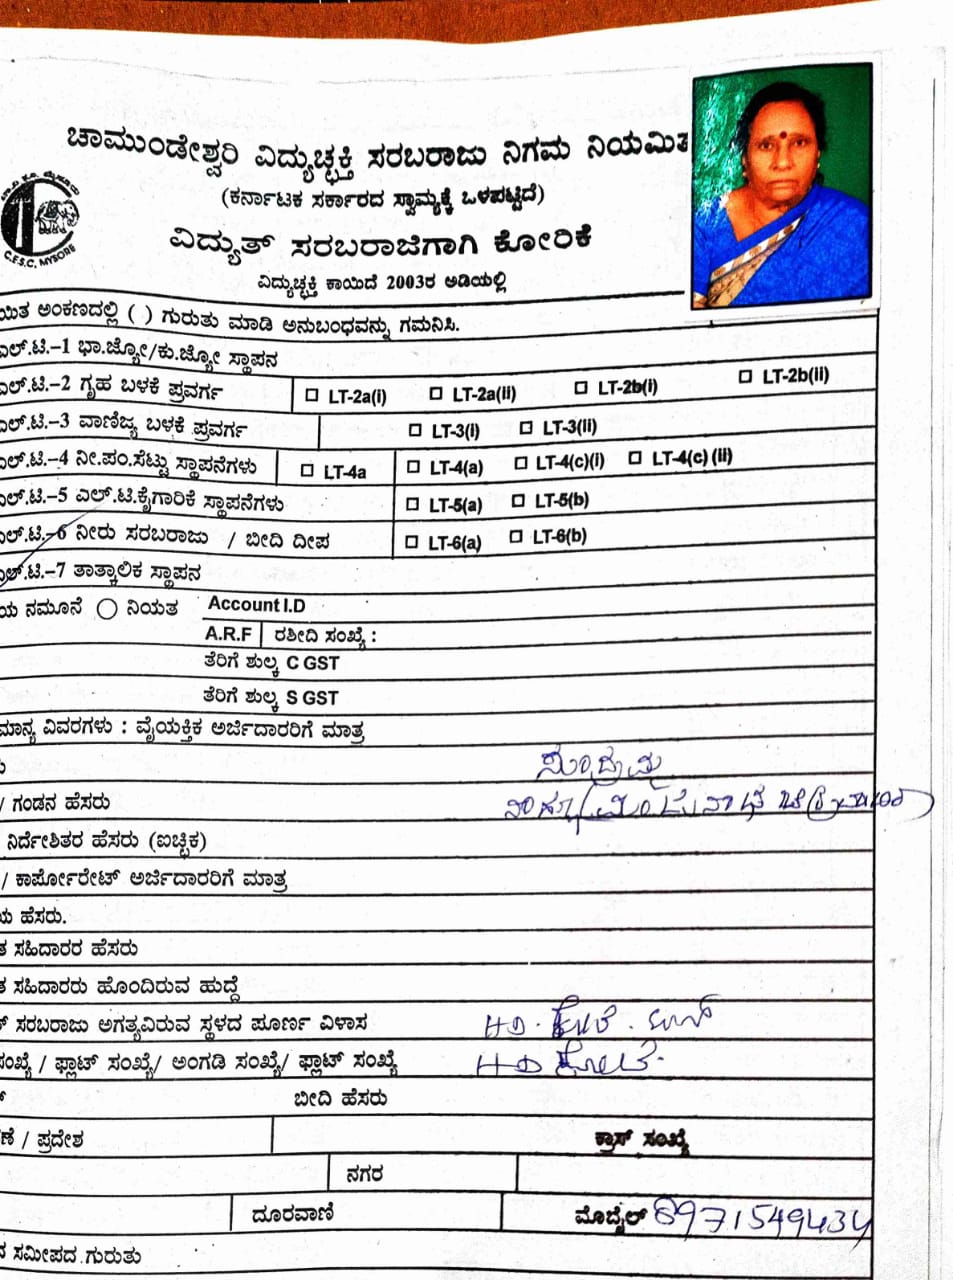 ಚಾಮುಂಡೇಶ್ವರಿ ವಿದ್ಯುಚ್ಛಕ್ತಿ ಸರಬರಾಜು ನಿಗಮ ನಿಯಮಿತ
(ಕರ್ನಾಟಕ ಸರ್ಕಾರದ ಸ್ವಾಮ್ಯಕ್ಕೆ ಒಳಪಟ್ಟಿದೆ)
C.E.S.C, MYSORE
ವಿದ್ಯುತ್ ಸರಬರಾಜಿಗಾಗಿ ಕೋರಿಕೆ
ವಿದ್ಯುಚ್ಛಕ್ತಿ ಕಾಯಿದೆ 2003ರ ಅಡಿಯಲ್ಲಿ
ಯಿತ ಅಂಕಣದಲ್ಲಿ ( ) ಗುರುತು ಮಾಡಿ ಅನುಬಂಧವನ್ನು ಗಮನಿಸಿ.
ಎಲ್.ಟಿ.–1 ಭಾ.ಜ್ಯೋ/ಕು.ಜ್ಯೋ ಸ್ಥಾಪನ
ಎಲ್.ಟಿ.–2 ಗೃಹ ಬಳಕೆ ಪ್ರವರ್ಗ LT-2a(i) LT-2a(ii) LT-2b(i) LT-2b(ii)
ಎಲ್.ಟಿ.–3 ವಾಣಿಜ್ಯ ಬಳಕೆ ಪ್ರವರ್ಗ LT-3(i) LT-3(ii)
ಎಲ್.ಟಿ.–4 ನೀ.ಪಂ.ಸೆಟ್ಟು ಸ್ಥಾಪನೆಗಳು LT-4a LT-4(a) LT-4(c)(i) LT-4(c) (ii)
ಎಲ್.ಟಿ.–5 ಎಲ್.ಟಿ.ಕೈಗಾರಿಕೆ ಸ್ಥಾಪನೆಗಳು LT-5(a) LT-5(b)
ಎಲ್.ಟಿ.–6 ನೀರು ಸರಬರಾಜು / ಬೀದಿ ದೀಪ LT-6(a) LT-6(b)
ಎಲ್.ಟಿ.–7 ತಾತ್ಕಾಲಿಕ ಸ್ಥಾಪನ
ಯ ನಮೂನೆ ನಿಯತ Account I.D
A.R.F ರಶೀದಿ ಸಂಖ್ಯೆ :
ತೆರಿಗೆ ಶುಲ್ಕ C GST
ತೆರಿಗೆ ಶುಲ್ಕ S GST
ಮಾನ್ಯ ವಿವರಗಳು : ವೈಯಕ್ತಿಕ ಅರ್ಜಿದಾರರಿಗೆ ಮಾತ್ರ
/ ಗಂಡನ ಹೆಸರು
ನಿರ್ದೇಶಿತರ ಹೆಸರು (ಐಚ್ಛಿಕ)
/ ಕಾರ್ಪೋರೇಟ್ ಅರ್ಜಿದಾರರಿಗೆ ಮಾತ್ರ
ಯ ಹೆಸರು.
ತ ಸಹಿದಾರರ ಹೆಸರು
ತ ಸಹಿದಾರರು ಹೊಂದಿರುವ ಹುದ್ದೆ
ಸರಬರಾಜು ಅಗತ್ಯವಿರುವ ಸ್ಥಳದ ಪೂರ್ಣ ವಿಳಾಸ HD. ಕೋಟೆ. ಟೌನ್
ಸಂಖ್ಯೆ / ಫ್ಲಾಟ್ ಸಂಖ್ಯೆ/ ಅಂಗಡಿ ಸಂಖ್ಯೆ/ ಫ್ಲಾಟ್ ಸಂಖ್ಯೆ HD ಕೋಟೆ.
ಬೀದಿ ಹೆಸರು
ಣೆ / ಪ್ರದೇಶ ಕ್ರಾಸ್ ಸಂಖ್ಯೆ
ನಗರ
ದೂರವಾಣಿ ಮೊಬೈಲ್ 8971549434
ನ ಸಮೀಪದ ಗುರುತು